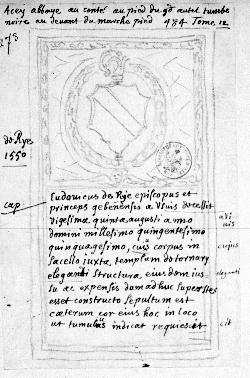 Acey abbaye au conté au pied du gd autel tumbe
noire au devant du marche pied 484 Tome 12
273
de Rye
1550
cap
Ludovicus de Rye episcopus et
princeps gebenensis a vivis decessit
vigesima quinta augusti anno
domini millesimo quingentesimo
quinquagesimo, cuius corpus in
sacello iuxta templum do tornary
eleganti structura, eius dom ius
su ac expensis dum adhuc superstes
esset constructo sepultum est
caterum cor eius hoc in loco
ut tumulus indicat requiescit
a vi
vis
cujus
eleganti
cit